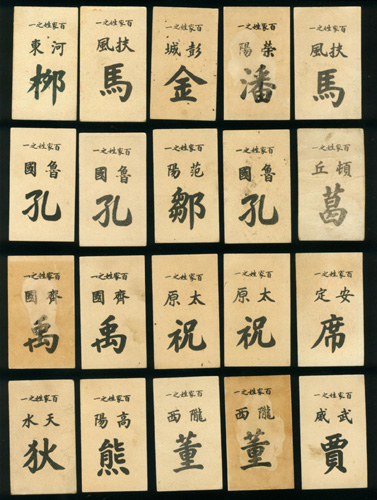 百家姓之一
河東
柳
百家姓之一
扶風
馬
百家姓之一
彭城
金
百家姓之一
滎陽
潘
百家姓之一
扶風
馬
百家姓之一
魯國
孔
百家姓之一
魯國
孔
百家姓之一
范陽
鄒
百家姓之一
魯國
孔
百家姓之一
頓丘
葛
百家姓之一
齊國
禹
百家姓之一
齊國
禹
百家姓之一
太原
祝
百家姓之一
太原
祝
百家姓之一
安定
席
百家姓之一
天水
狄
百家姓之一
高陽
熊
百家姓之一
隴西
董
百家姓之一
隴西
董
百家姓之一
武威
賈